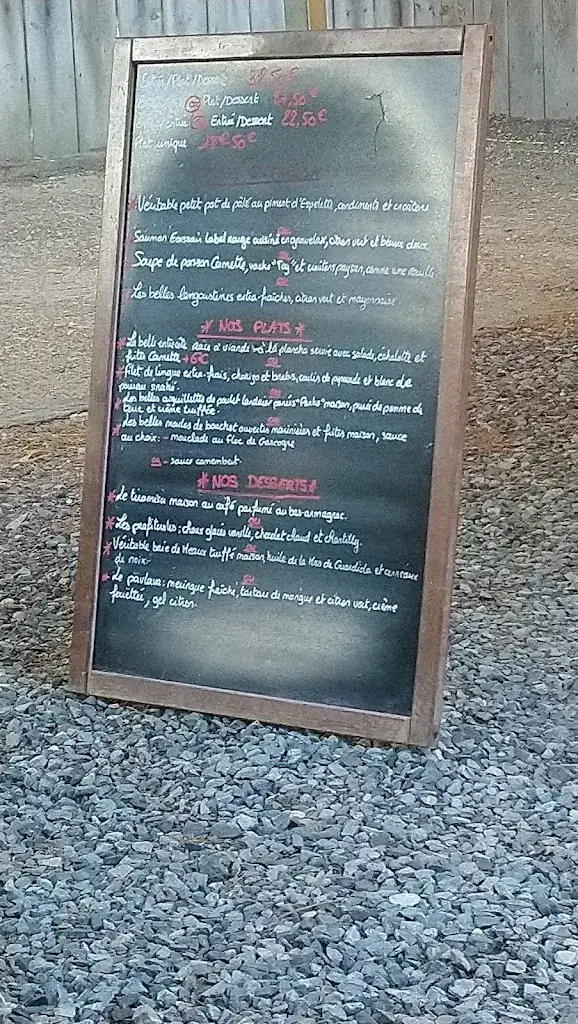 Entrée/Plat/Dessert
ou Plat/Dessert 22,50€
ou Entrée/Dessert 22,50€
Plat unique
* Véritable petit pot de pâté au piment d'Espelette, condiments et croûtons
ou
Saumon Ecossais label rouge cuisiné en gravelax, citron vert et
ou
Soupe de poisson Camette,
ou
* Les belles langoustines extra-fraîches, citron vert et mayonnaise
* NOS PLATS *
* La belle entrecôte race à viande à la plancha servie avec salade, échalote et
frites Camette +6€
ou
* Filet de lingue extra-frais, chorizo et brebis, coulis de piquillo et blanc de
poireau snaké.
ou
* Les belles aiguillettes de poulet landais panées "Panko" maison, purée de pomme de
terre et crème truffée.
ou
* Les belles moules de bouchot ouvertes marinières et frites maison, sauce
au choix: - mouclade au Floc de Gascogne
ou - sauce camembert.
* NOS DESSERTS *
* Le tiramisu maison au café parfumé au bas-armagnac.
ou
* Les profiteroles: choux glacés vanille, chocolat chaud et chantilly.
ou
* Véritable brie de Meaux truffé maison, huile de la Mas de Guardiola et
de noix
ou
* Le pavlova: meringue fraîche, tartare de mangue et citron vert, crème
fouettée, gel citron.